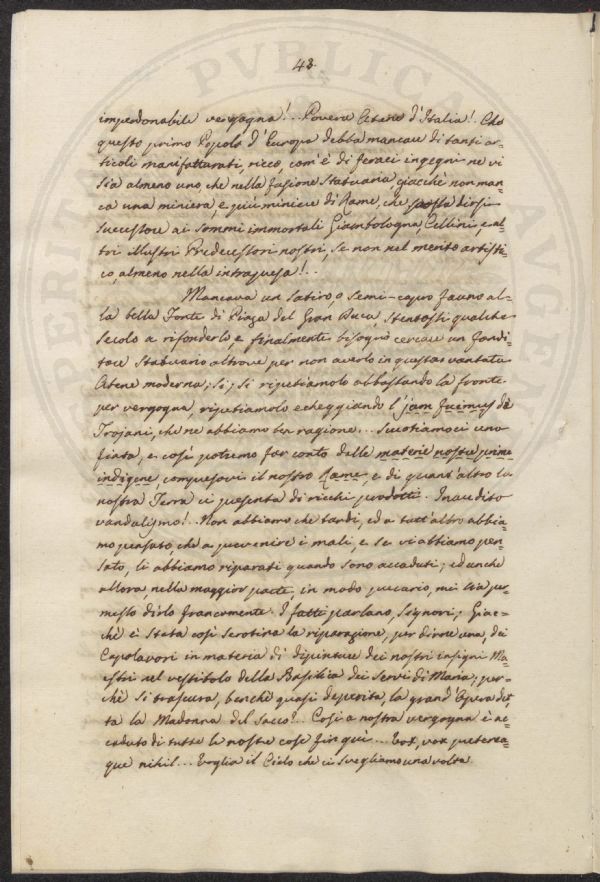 43.
imperdonabile vergogna!... Povera Atene d'Italia! Che
questo primo Popolo d'Europa debba mancare di tanti ar=
ticoli manifatturati, ricco, com'è di feraci ingegni ne vi
sia almeno uno che nella fusione statuaria, giacchè non man=
ca una miniera, e più miniere di Rame, che possa dirsi
successore ai sommi immortali Giambologna, Cellini, e al=
tri illustri Predecessori nostri, se non nel merito artisti=
co, almeno nella intrapresa!..
Mancava un satiro, o semi-capro fauno al=
la bella Fonte di Piaza del Gran Duca, stentossi qualche
secolo a rifonderlo, e finalmente bisognò cercare un fondi=
tore statuario altrove per non averlo in questa vantata
Atene moderna; sì; sì ripetiamolo abbassando la fronte
per vergogna, ripetiamolo echeggiando l'jam fuimus dè
Trojani, che ne abbiamo ben ragione... Scuotiamoci una
fiata, e così potremo far conto delle materie nostre prime
indigene, compresovi il nostro Rame, e di quant'altro la
nostra Terra ci presenta di ricchi prodotti. Inaudito
vandalismo!.. Non abbiamo che tardi, ed a tutt'altro abbia=
mo pensato, che a prevenire i mali, e se vi abbiamo pen=
sato, li abbiamo riparati quando sono accaduti; ed anche
allora, nella maggior parte, in modo precario, mi sia per=
messo dirlo francamente. I fatti parlano, Signori; Giac=
chè è stata così serotina la riparazione, per dirne una, dei
Capolavori in materia di dipinture dei nostri insigni Ma=
estri nel vestibolo della Basilica dei Servi di Maria; per=
chè si trascura, benchè quasi deperita, la grand'Opera det=
ta la Madonna del Sacco?... Così a nostra vergogna è ac=
caduto di tutte le nostre cose fin qui... Vox, vox praeterea=
que nihil... Voglia il Cielo che ci svegliamo una volta